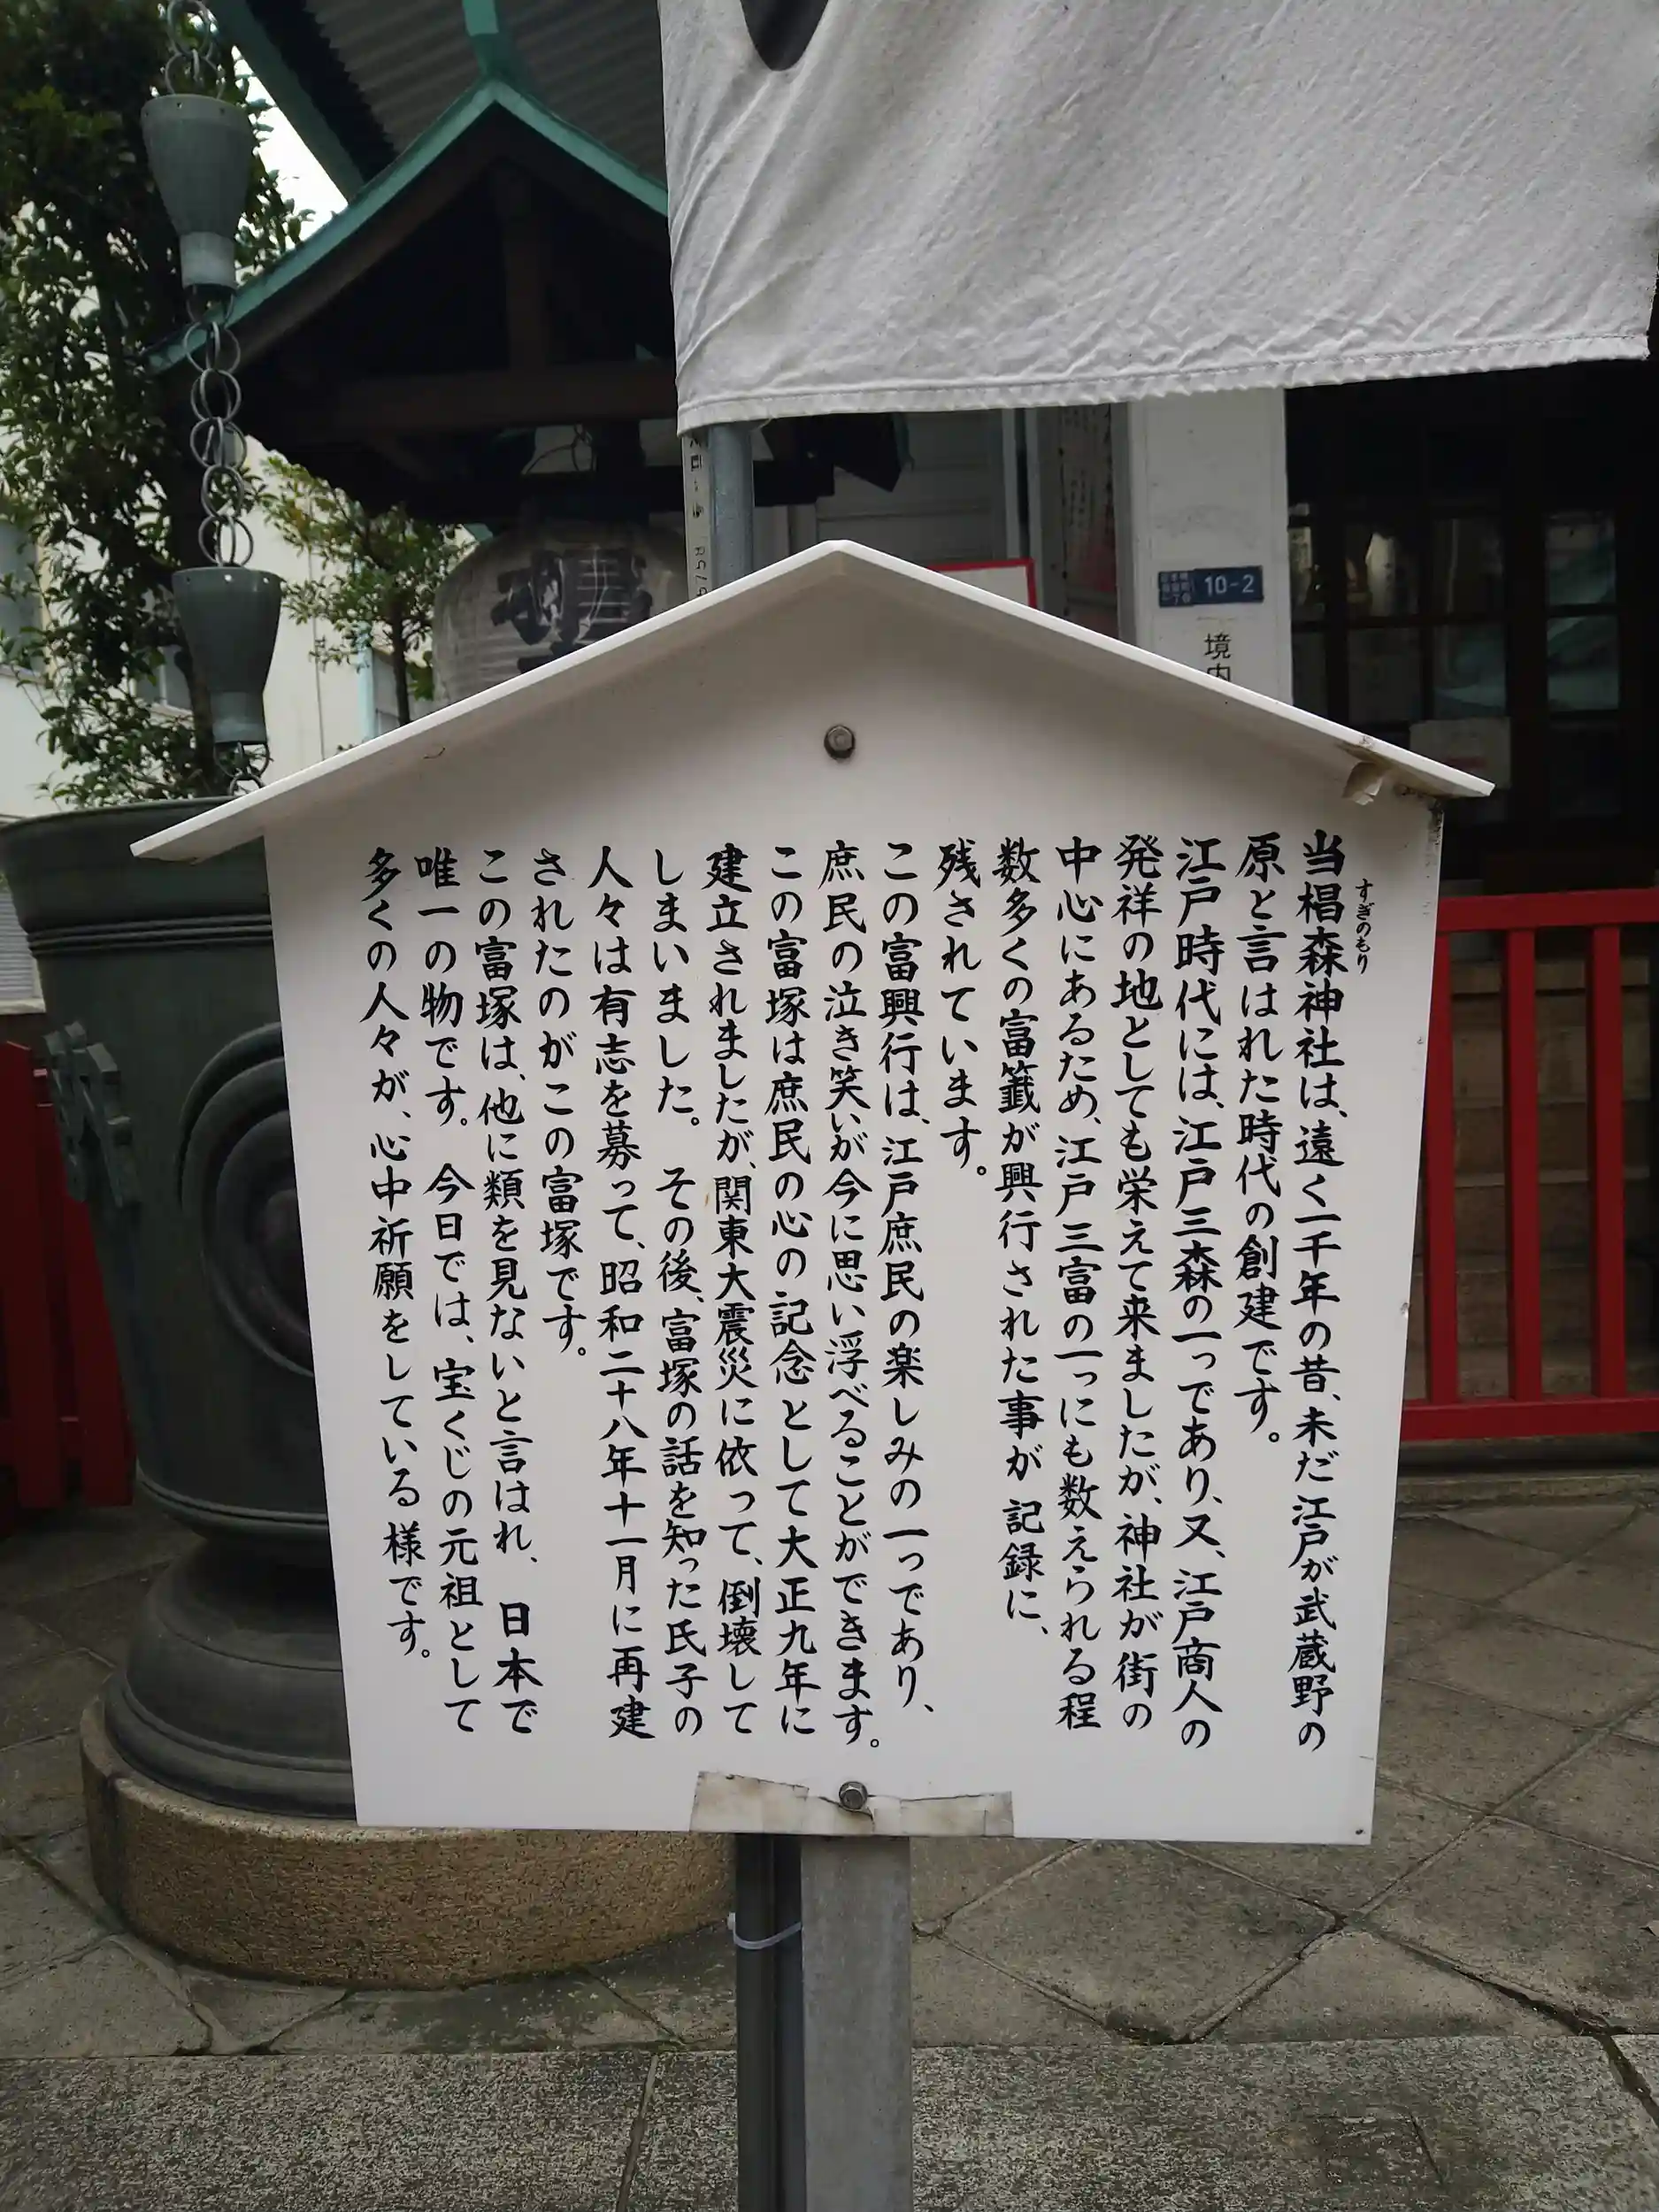 当椙森神社は、遠く一千年の昔、未だ江戸が武蔵野の
すぎのもり
原と言はれた時代の創建です。
江戸時代には、江戸三森の一っであり、又、江戸商人の
発祥の地としても栄えて来ましたが、神社が街の
中心にあるため、江戸三富の一っにも数えられる程
数多くの富籤が興行された事が記録に、
残されています。
この富興行は、江戸庶民の楽しみの一っであり、
庶民の泣き笑いが今に思い浮べることができます。
この富塚は庶民の心の記念として大正九年に
建立されましたが、関東大震災に依って、倒壊して
しまいました。　その後、富塚の話を知った氏子の
人々は有志を募って、昭和二十八年十一月に再建
されたのがこの富塚です。
この富塚は、他に類を見ないと言はれ、日本で
唯一の物です。　今日では、宝くじの元祖として
多くの人々が、心中祈願をしている様です。
10-2
境内